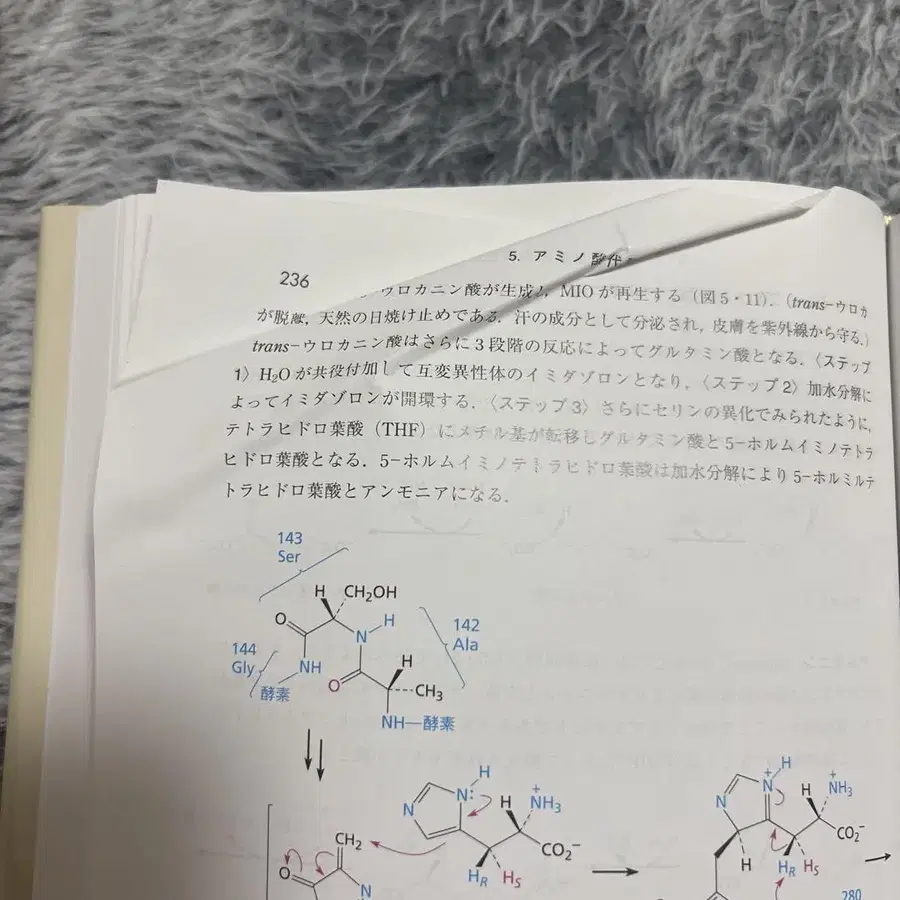 5. アミノ酸代
236
ウロカニン酸が生成し,MIOが再生する(図5・11).(trans-ウロカ
が脱離,天然の日焼け止めである.汗の成分として分泌され,皮膚を紫外線から守る.)
trans-ウロカニン酸はさらに3段階の反応によってグルタミン酸となる.〈ステップ
1〉H₂Oが共役付加して互変異性体のイミダゾロンとなり,〈ステップ2〉加水分解に
よってイミダゾロンが開環する.〈ステップ3〉さらにセリンの異化でみられたように,
テトラヒドロ葉酸(THF)にメチル基が転移しグルタミン酸と5-ホルムイミノテトラ
ヒドロ葉酸となる.5-ホルムイミノテトラヒドロ葉酸は加水分解により5-ホルミルテ
トラヒドロ葉酸とアンモニアになる.
143
Ser
H CH₂OH
O N H
142
Ala
144
Gly
NH
酵素
O H
CH₃
NH—酵素
H
N N: H +NH₃
CO₂⁻
H_R H_S
CH₂
O
N
H
N N+ H +NH₃
CO₂⁻
H H_R H_S
280